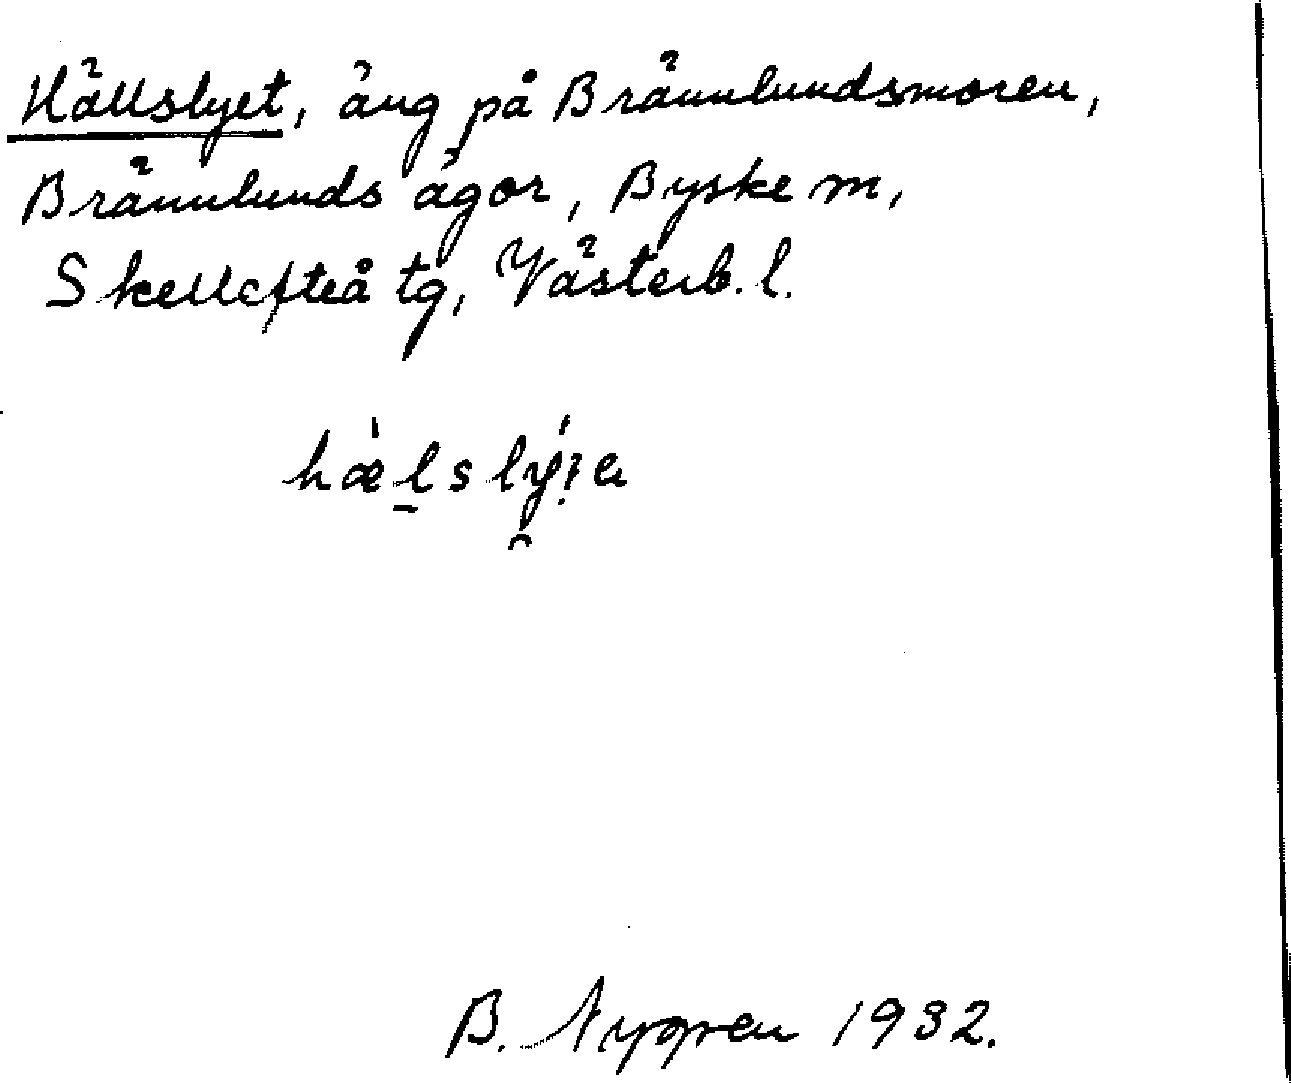 Hällslyet, äng på Brännlundsmoren,
Brännlunds ägor, Byske m,
Skellefteå tg, Västerb. l.
B. Nygren 1932.